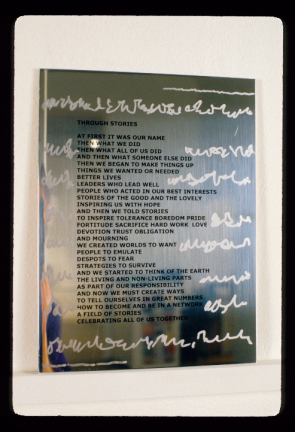 THROUGH STORIES
AT FIRST IT WAS OUR NAME
THEN WHAT WE DID
THEN WHAT ALL OF US DID
AND THEN WHAT SOMEONE ELSE DID
THEN WE BEGAN TO MAKE THINGS UP
THINGS WE WANTED OR NEEDED
BETTER LIVES
LEADERS WHO LEAD WELL
PEOPLE WHO ACTED IN OUR BEST INTERESTS
STORIES OF THE GOOD AND THE LOVELY
INSPIRING US WITH HOPE
AND THEN WE TOLD STORIES
TO INSPIRE TOLERANCE BOREDOM PRIDE
FORTITUDE SACRIFICE HARD WORK LOVE
DEVOTION TRUST OBLIGATION
AND MOURNING
WE CREATED WORLDS TO WANT
PEOPLE TO EMULATE
DESPOTS TO FEAR
STRATEGIES TO SURVIVE
AND WE STARTED TO THINK OF THE EARTH
THE LIVING AND NON-LIVING PARTS
AS PART OF OUR RESPONSIBILITY
AND NOW WE MUST CREATE WAYS
TO TELL OURSELVES IN GREAT NUMBERS
HOW TO BECOME AND BE IN A NETWORK
A FIELD OF STORIES
CELEBRATING ALL OF US TOGETHER